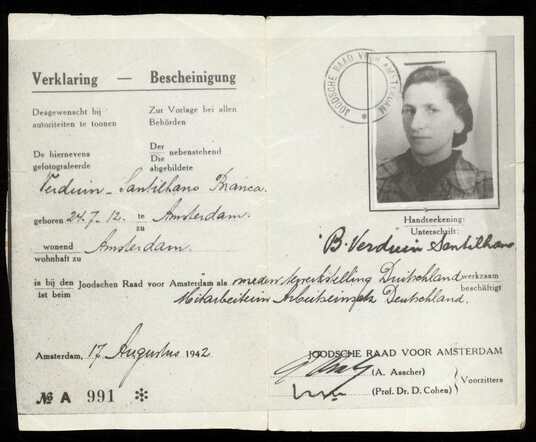 Verklaring — Bescheinigung
Desgewenscht bij autoriteiten te toonen
Zur Vorlage bei allen Behörden
De hiernevens gefotografeerde
Der Die nebenstehend abgebildete
Verduin-Santilhano Bianca.
geboren 24.7-12. te zu Amsterdam.
wonend wohnhaft zu Amsterdam.
is bij den ist beim Joodschen Raad voor Amsterdam als medew. tewerkstelling Duitschland werkzaam beschäftigt
Mitarbeiterin Arbeitseinsatz Deutschland.
Amsterdam, 17 Augustus 1942
№ A 991 ✻
JOODSCHE RAAD VOOR AMSTERDAM
Handteekening:
Unterschrift:
B. Verduin Santilhano
JOODSCHE RAAD VOOR AMSTERDAM
(A. Asscher)
(Prof. Dr. D. Cohen)
Voorzitters